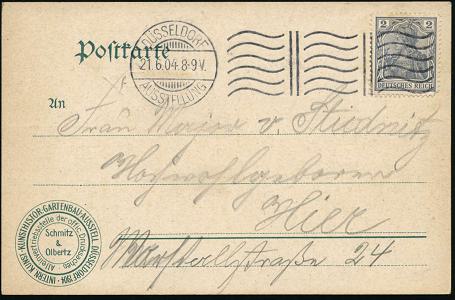 Postkarte
DÜSSELDORF
21.6.04.8-9V.
AUSSTELLUNG
2 2
DEUTSCHES REICH
An
Frau Major v. Stiednitz
Hochwohlgeboren
Hier
Marschallstraße 24
INTERN. KUNST- KUNSTHISTOR- GARTENBAU-AUSSTELL. DÜSSELDORF 1904
Alleinvertriebsstelle der offic. Drucksachen
Schmitz
&
Olbertz